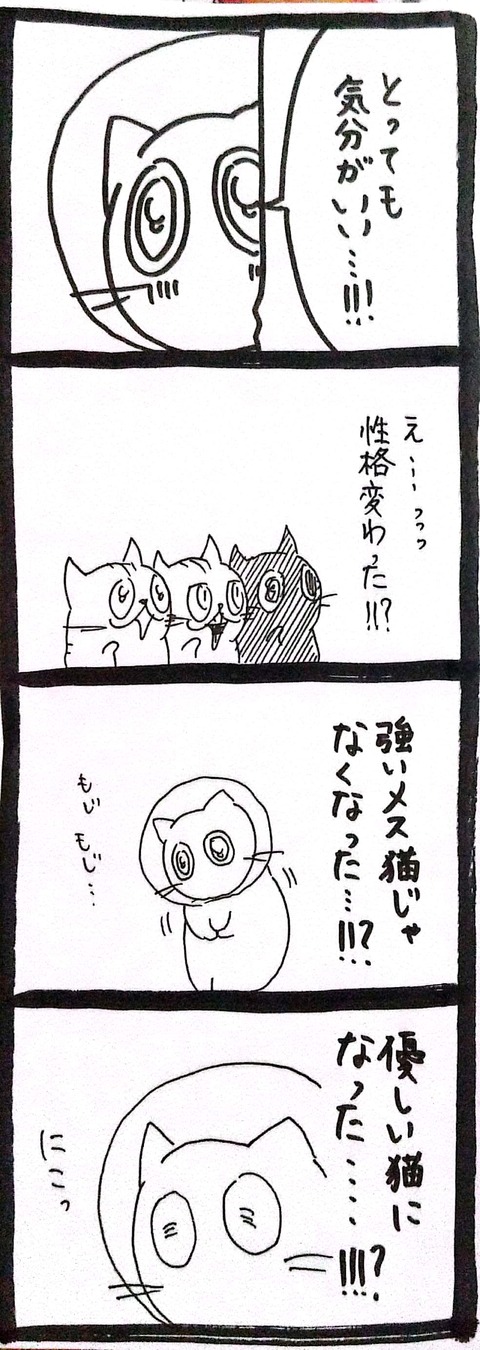 とっても
気分がいい…!!!
え……っっっ
性格変わった!!?
強いメス猫じゃ
なくなった…!!?
もじもじ…
優しい猫に
なった……!!!?
にこっ